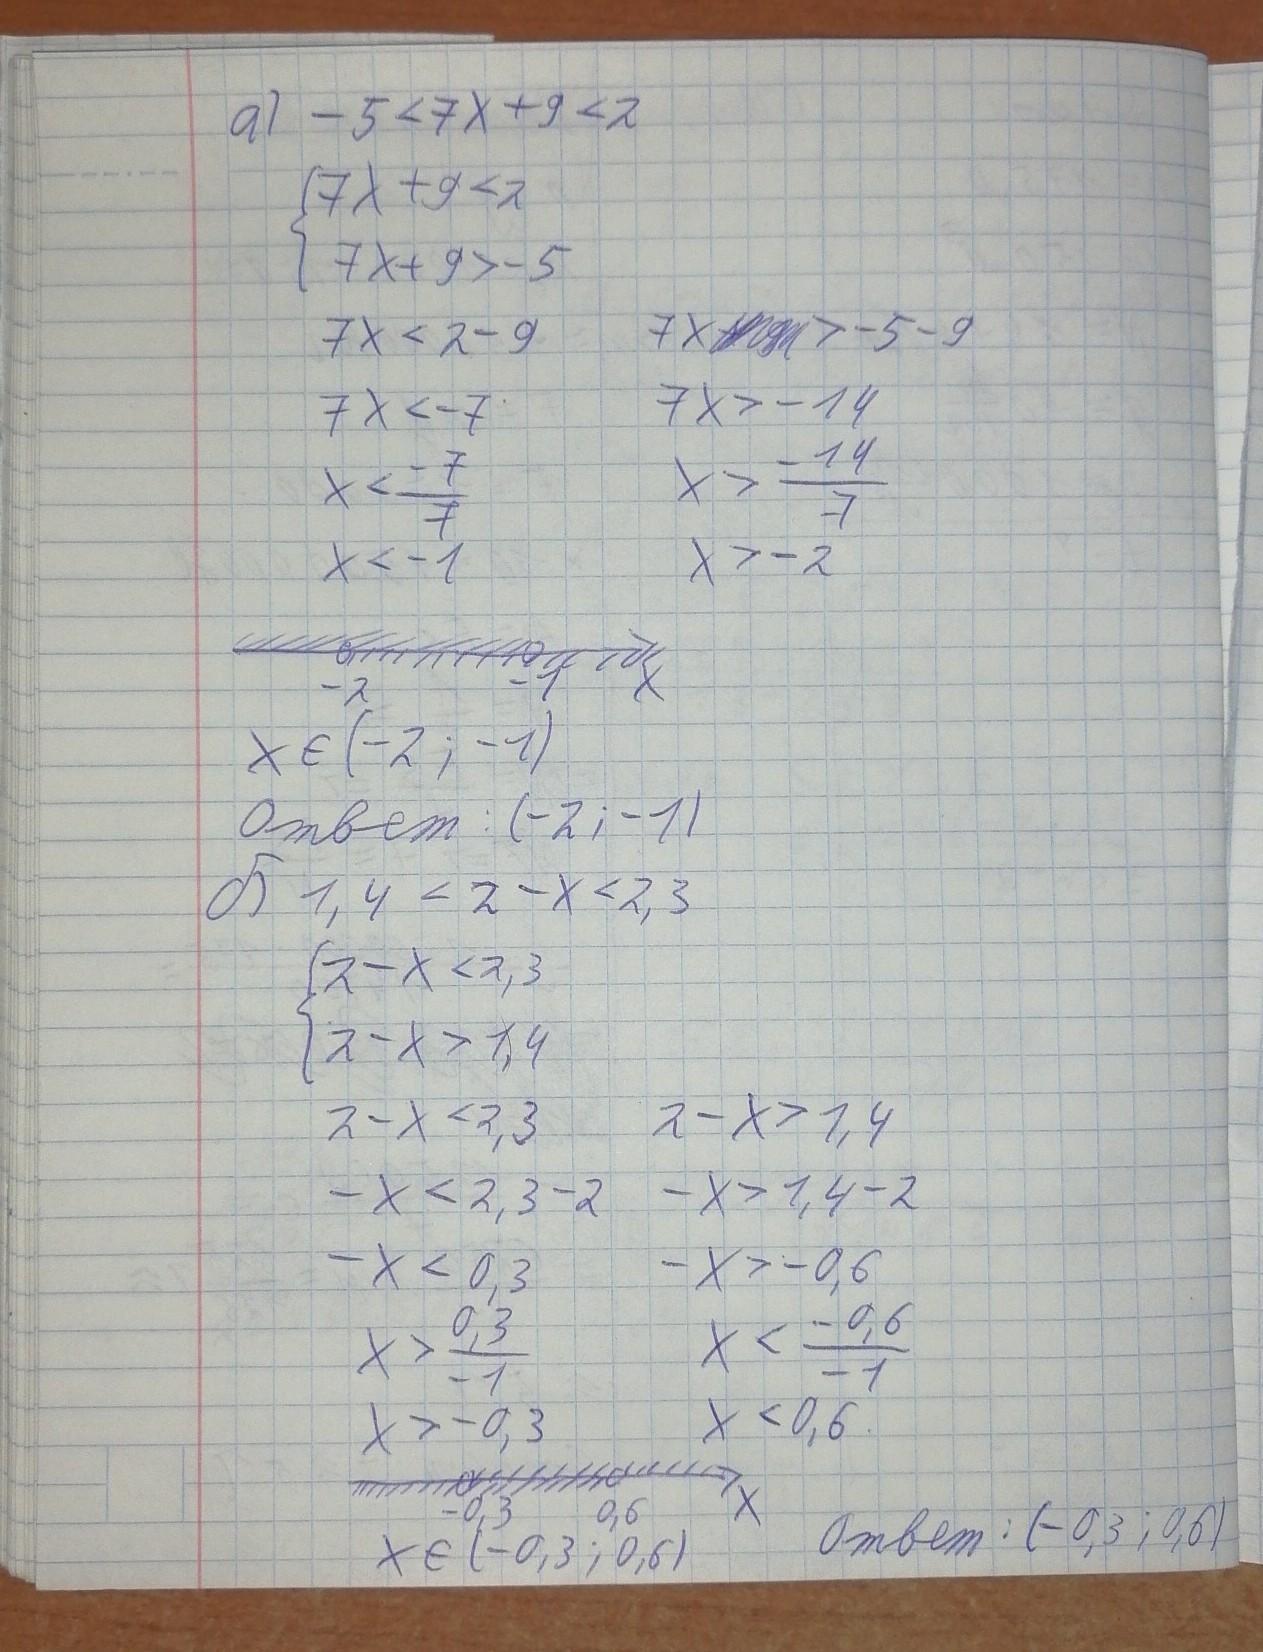 а) -5<7x+9<2
{7x+9<2
7x+9>-5
7x<2-9 7x>-5-9
7x<-7 7x>-14
x<-7/7 x>-14/7
x<-1 x>-2
-2 -1 x
x∈(-2;-1)
Ответ: (-2;-1)
б) 1,4<2-x<2,3
{2-x<2,3
2-x>1,4
2-x<2,3 2-x>1,4
-x<2,3-2 -x>1,4-2
-x<0,3 -x>-0,6
x>0,3/-1 x<-0,6/-1
x>-0,3 x<0,6.
-0,3 0,6 x
x∈(-0,3;0,6) Ответ: (-0,3;0,6)